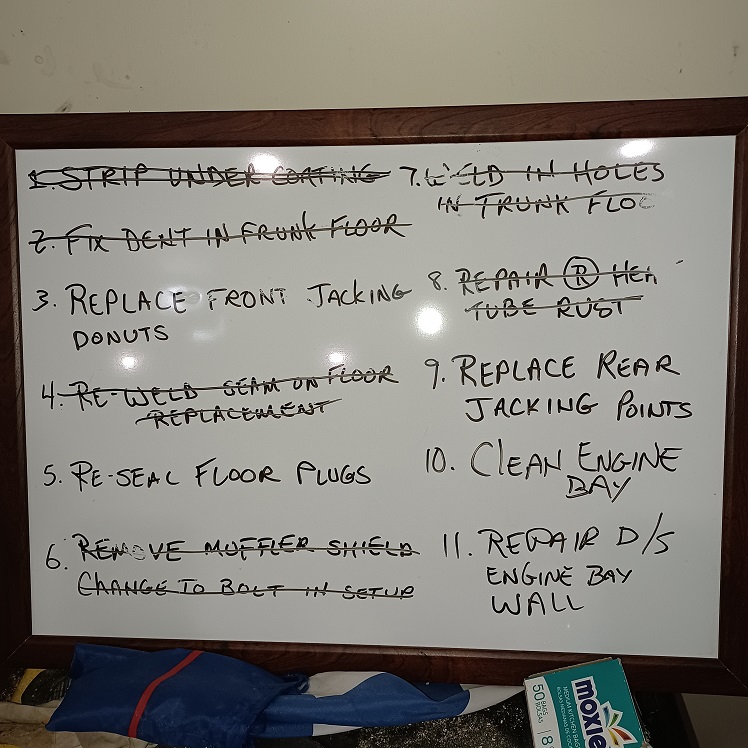 1. STRIP UNDER COATING
2. FIX DENT IN FRUNK FLOOR
3. REPLACE FRONT JACKING
DONUTS
4. RE-WELD SEAM ON FLOOR
REPLACEMENT
5. RE-SEAL FLOOR PLUGS
6. REMOVE MUFFLER SHIELD
CHANGE TO BOLT IN SETUP
7. WELD IN HOLES
IN TRUNK FLOO
8. REPAIR R
TUBE RUST
9. REPLACE REAR
JACKING POINTS
10. CLEAN ENGINE
BAY
11. REPAIR D/S
ENGINE BAY
WALL
50 BAGS
BOLSAS
moxie